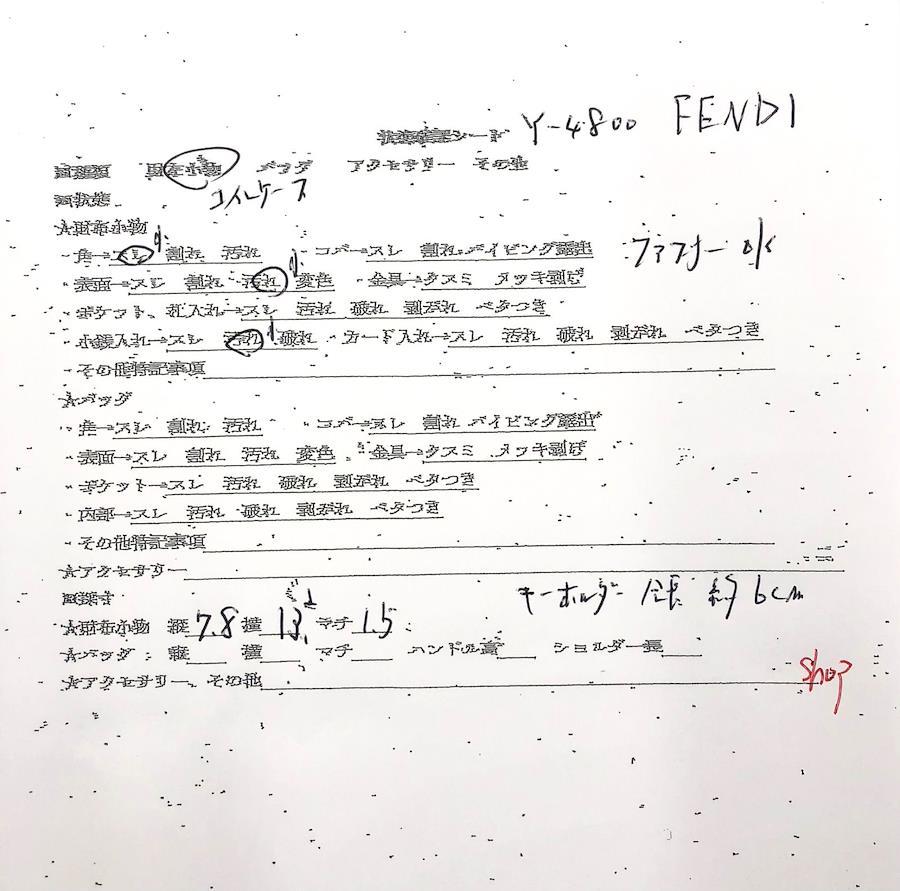 状態確認シート Y-4800 FENDI
財布小物 バッグ アクセサリー その他
コインケース
状態
★財布小物
・角→スレ 割れ 汚れ ・コバ→スレ 割れ パイピング露出 ファスナー
・表面→スレ 割れ 汚れ 変色 ・金具→クスミ メッキ剥げ
・ポケット、札入れ→スレ 汚れ 破れ 剥がれ ベタつき
・小銭入れ→スレ 汚れ 破れ ・カード入れ→スレ 汚れ 破れ 剥がれ ベタつき
・その他特記事項
★バッグ
・角→スレ 割れ 汚れ ・コバ→スレ 割れ パイピング露出
・表面→スレ 割れ 汚れ 変色 ・金具→クスミ メッキ剥げ
・ポケット→スレ 汚れ 破れ 剥がれ ベタつき
・内部→スレ 汚れ 破れ 剥がれ ベタつき
・その他特記事項
★アクセサリー
採寸 キーホルダー 全長 約6cm
★財布小物 縦 7.8 横 13.1 マチ 1.5
★バッグ: 縦 横 マチ ハンドル高 ショルダー長
★アクセサリー、その他